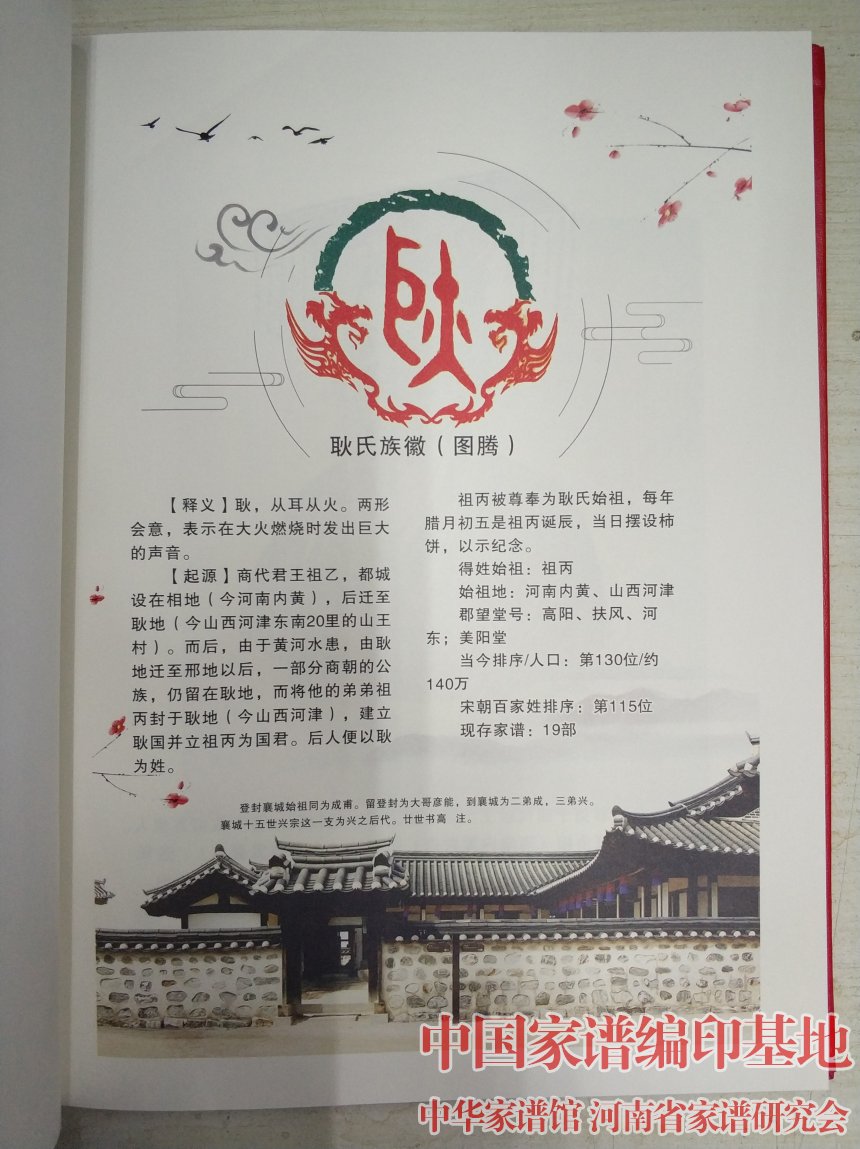 耿氏族徽（图腾）
【释义】耿，从耳从火。两形
会意，表示在大火燃烧时发出巨大
的声音。
【起源】商代君王祖乙，都城
设在相地（今河南内黄），后迁至
耿地（今山西河津东南20里的山王
村）。而后，由于黄河水患，由耿
地迁至邢地以后，一部分商朝的公
族，仍留在耿地，而将他的弟弟祖
丙封于耿地（今山西河津），建立
耿国并立祖丙为国君。后人便以耿
为姓。
祖丙被尊奉为耿氏始祖，每年
腊月初五是祖丙诞辰，当日摆设柿
饼，以示纪念。
得姓始祖：祖丙
始祖地：河南内黄、山西河津
郡望堂号：高阳、扶风、河
东；美阳堂
当今排序/人口：第130位/约
140万
宋朝百家姓排序：第115位
现存家谱：19部
登封襄城始祖同为成甫。留登封为大哥彦能，到襄城为二弟成，三弟兴。
襄城十五世兴宗这一支为兴之后代。廿世书高 注。
中国家谱编印基地
中华家谱馆 河南省家谱研究会